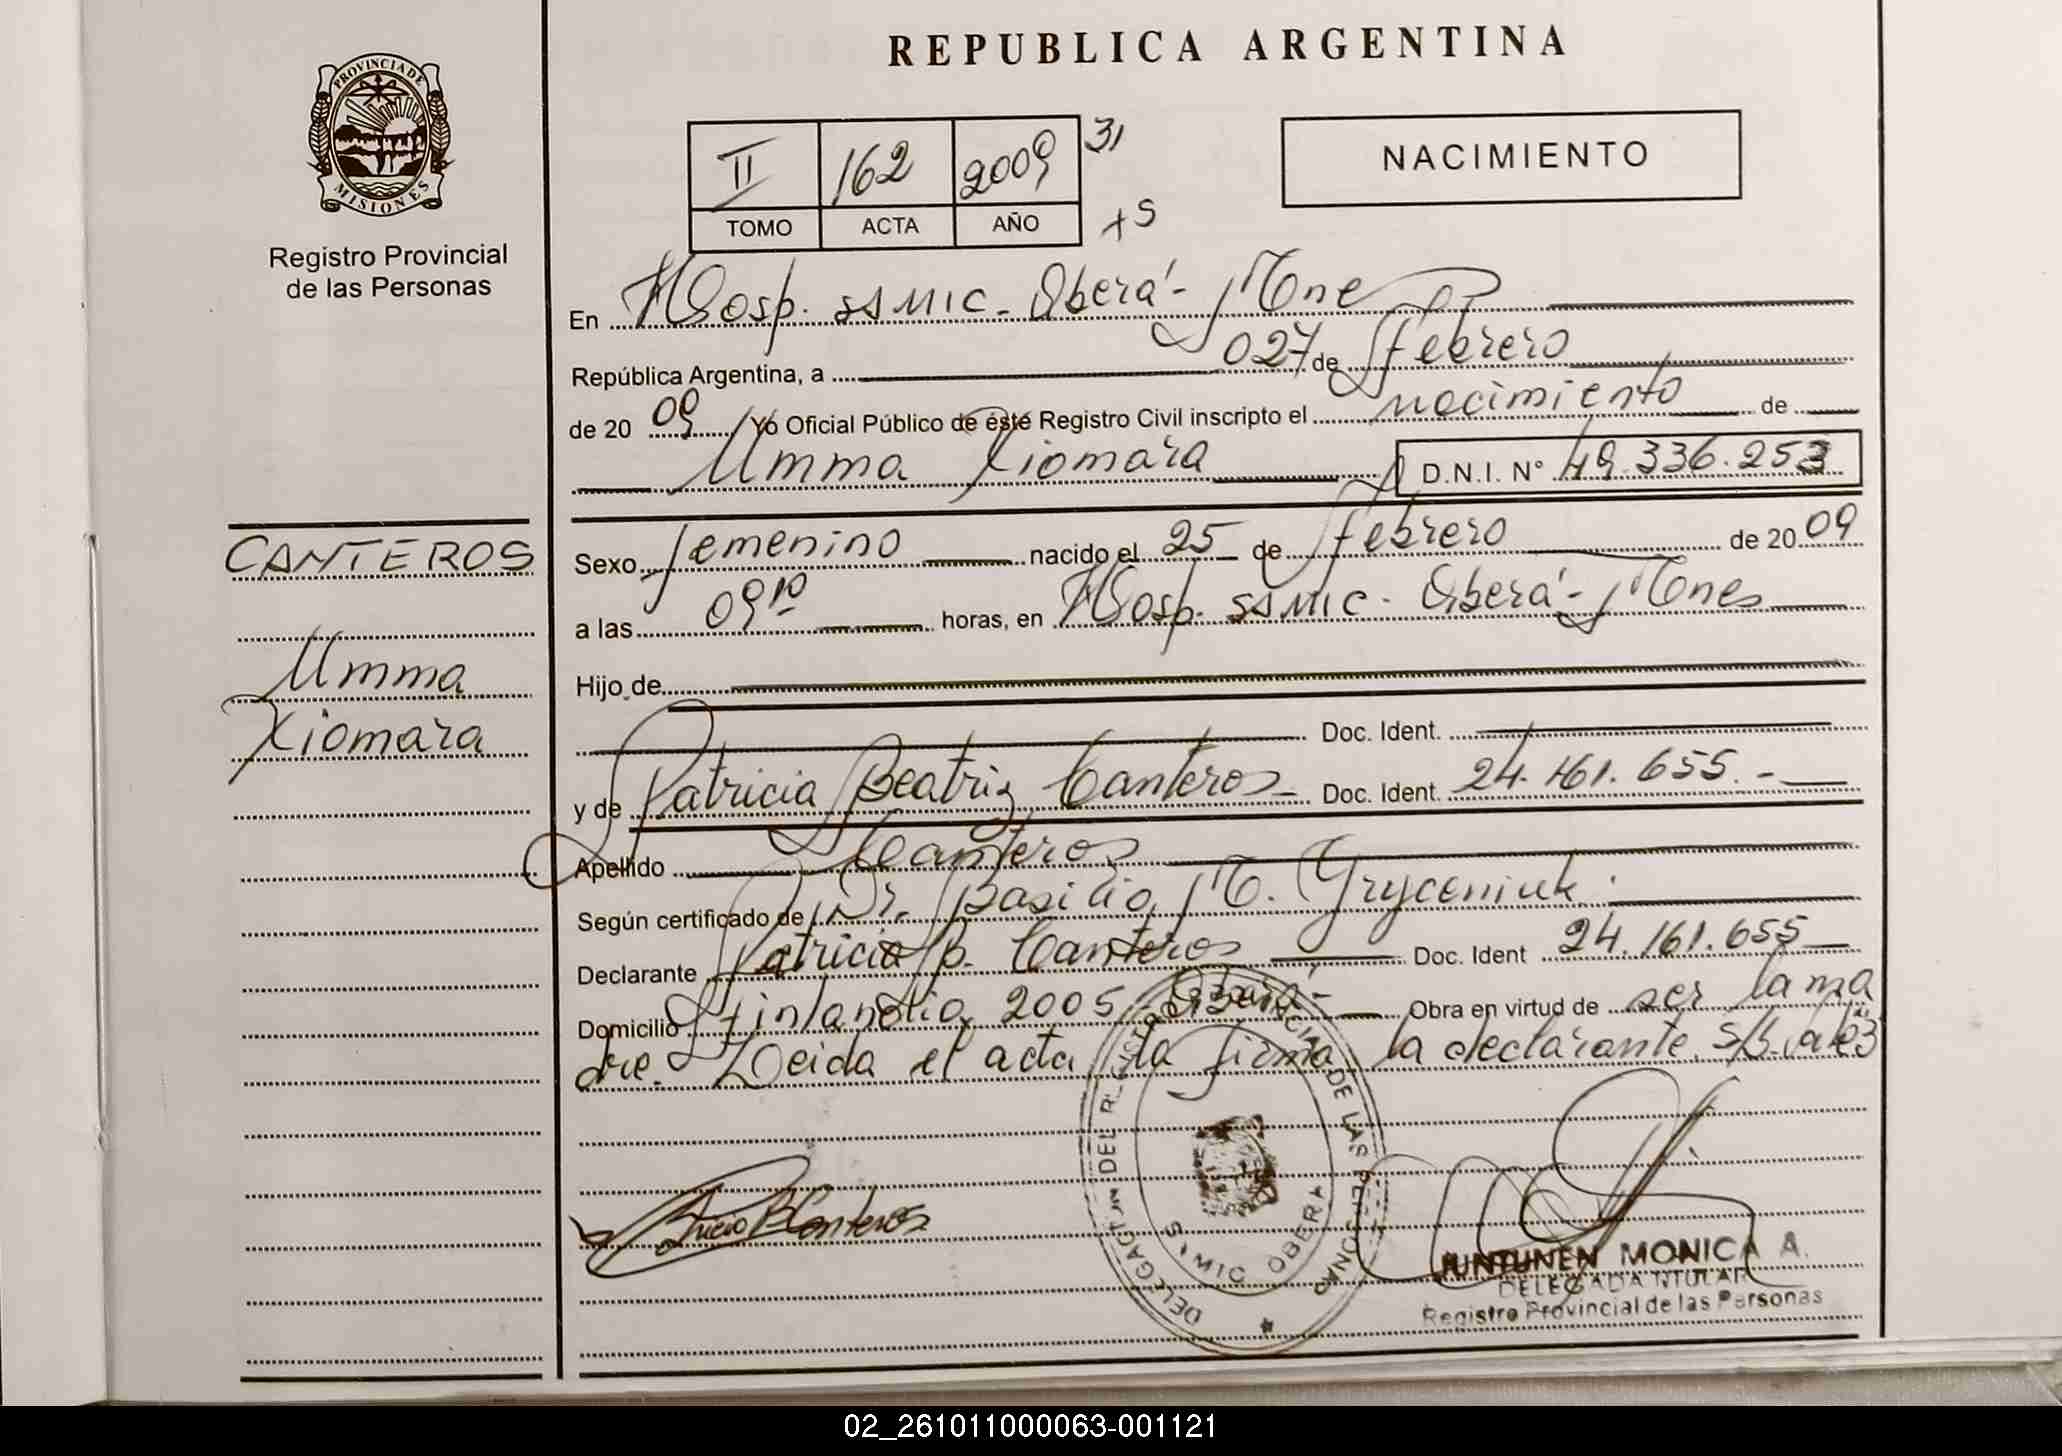 REPUBLICA ARGENTINA
PROVINCIA DE
MISIONES
Registro Provincial
de las Personas
II 162 2009 31
TOMO ACTA AÑO
NACIMIENTO
En Hosp. SAMIC - Oberá - Mnes
República Argentina, a 027 de febrero
de 20 09 Yó Oficial Público de éste Registro Civil inscripto el nacimiento de
Umma Xiomara D.N.I. N° 49.336.253
CANTEROS
Umma
Xiomara
Sexo femenino nacido el 25 de febrero de 20 09
a las 09 10 horas, en Hosp. SAMIC - Oberá - Mnes
Hijo de
Doc. Ident.
y de Patricia Beatriz Canteros - Doc. Ident. 24.161.655.-
Apellido Canteros
Según certificado de Dr. Basilio M. Gryceniuk.
Declarante Patricia B. Canteros Doc. Ident 24.161.655
Domicilio Finlandia 2005 Oberá - Obra en virtud de ser la ma
dre. Leida el acta la firma la declarante.
Patricia B Canteros
DELEGACION DEL REGISTRO PROVINCIAL DE LAS PERSONAS
SAMIC OBERA
JUNTUNEN MONICA A.
DELEGADA TITULAR
Registro Provincial de las Personas
02_261011000063-001121